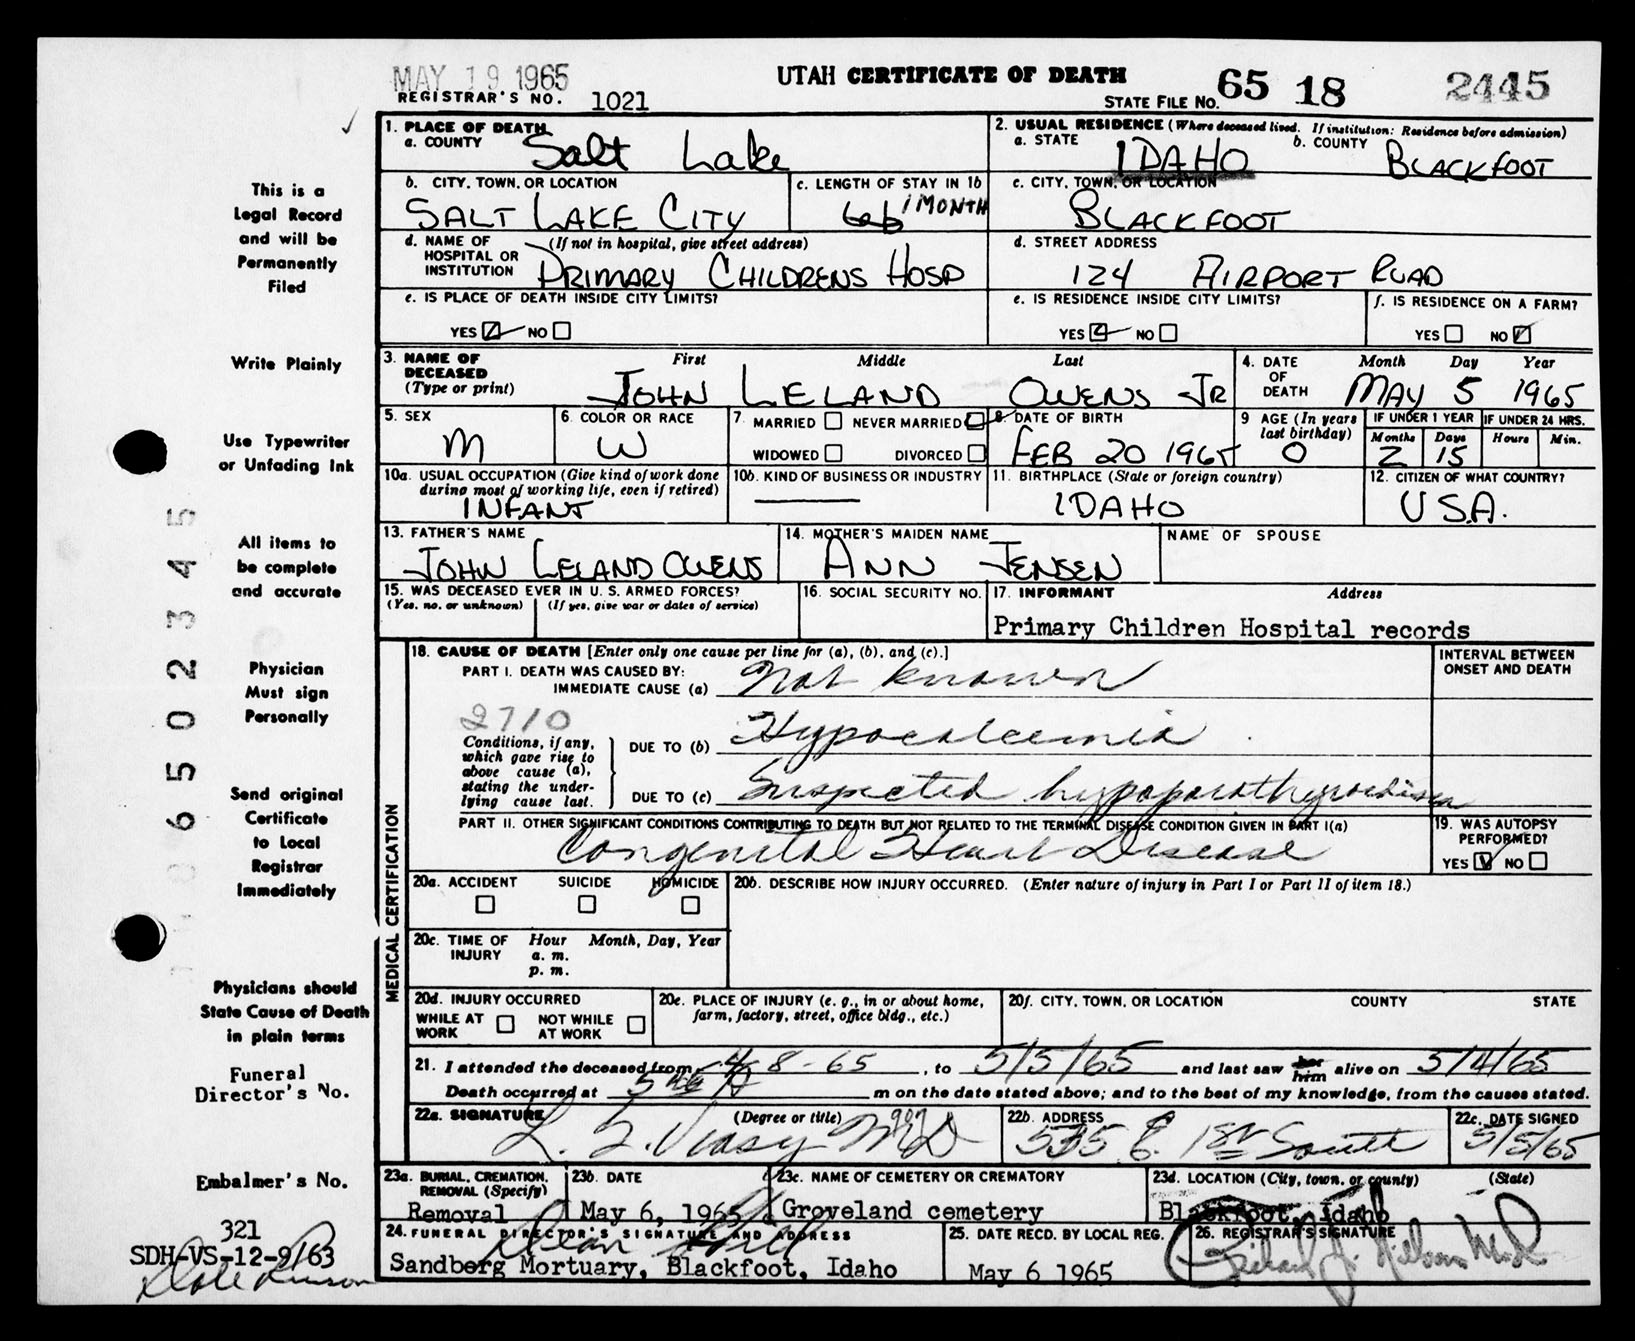 MAY 19 1965
UTAH CERTIFICATE OF DEATH
REGISTRAR'S NO. 1021
STATE FILE NO. 65 18 2445
1. PLACE OF DEATH
a. COUNTY Salt Lake
2. USUAL RESIDENCE (Where deceased lived. If institution: Residence before admission)
a. STATE IDAHO
b. COUNTY BLACKFOOT
b. CITY, TOWN, OR LOCATION
SALT LAKE CITY
c. LENGTH OF STAY IN 1b
1 MONTH
c. CITY, TOWN, OR LOCATION
BLACKFOOT
d. NAME OF HOSPITAL OR INSTITUTION (If not in hospital, give street address)
PRIMARY CHILDRENS HOSP
d. STREET ADDRESS
124 AIRPORT ROAD
e. IS PLACE OF DEATH INSIDE CITY LIMITS?
YES NO
e. IS RESIDENCE INSIDE CITY LIMITS?
YES NO
f. IS RESIDENCE ON A FARM?
YES NO
3. NAME OF DECEASED (Type or print)
First Middle Last
JOHN LELAND OWENS JR
4. DATE OF DEATH
Month Day Year
MAY 5 1965
5. SEX
M
6. COLOR OR RACE
W
7. MARRIED NEVER MARRIED
WIDOWED DIVORCED
8. DATE OF BIRTH
FEB 20 1965
9 AGE (In years last birthday)
0
IF UNDER 1 YEAR
Months Days
2 15
IF UNDER 24 HRS.
Hours Min.
10a. USUAL OCCUPATION (Give kind of work done during most of working life, even if retired)
INFANT
10b. KIND OF BUSINESS OR INDUSTRY
11. BIRTHPLACE (State or foreign country)
IDAHO
12. CITIZEN OF WHAT COUNTRY?
U.S.A.
13. FATHER'S NAME
JOHN LELAND OWENS
14. MOTHER'S MAIDEN NAME
ANN JENSEN
NAME OF SPOUSE
15. WAS DECEASED EVER IN U. S. ARMED FORCES?
(Yes, no, or unknown) (If yes, give war or dates of service)
16. SOCIAL SECURITY NO.
17. INFORMANT Address
Primary Children Hospital records
18. CAUSE OF DEATH [Enter only one cause per line for (a), (b), and (c).]
INTERVAL BETWEEN ONSET AND DEATH
PART I. DEATH WAS CAUSED BY:
IMMEDIATE CAUSE (a) Not known
2710
Conditions, if any, which gave rise to above cause (a), stating the underlying cause last.
DUE TO (b) Hypocalcemia
DUE TO (c) Suspected hypoparathyroidism
PART II. OTHER SIGNIFICANT CONDITIONS CONTRIBUTING TO DEATH BUT NOT RELATED TO THE TERMINAL DISEASE CONDITION GIVEN IN PART I(a)
Congenital Heart Disease
19. WAS AUTOPSY PERFORMED?
YES NO
MEDICAL CERTIFICATION
20a. ACCIDENT SUICIDE HOMICIDE
20b. DESCRIBE HOW INJURY OCCURRED. (Enter nature of injury in Part I or Part II of item 18.)
20c. TIME OF INJURY
Hour Month, Day, Year
a. m.
p. m.
20d. INJURY OCCURRED
WHILE AT WORK NOT WHILE AT WORK
20e. PLACE OF INJURY (e. g., in or about home, farm, factory, street, office bldg., etc.)
20f. CITY, TOWN, OR LOCATION COUNTY STATE
21. I attended the deceased from 4-8-65, to 5/5/65 and last saw her him alive on 5/4/65
Death occurred at m on the date stated above; and to the best of my knowledge, from the causes stated.
22a. SIGNATURE (Degree or title)
L. G. Veasy MD
22b. ADDRESS
1st South
22c. DATE SIGNED
5/5/65
23a. BURIAL, CREMATION, REMOVAL (Specify)
Removal
23b. DATE
May 6, 1965
23c. NAME OF CEMETERY OR CREMATORY
Groveland cemetery
23d. LOCATION (City, town, or county) (State)
Blackfoot, Idaho
24. FUNERAL DIRECTOR'S SIGNATURE AND ADDRESS
Sandberg Mortuary, Blackfoot, Idaho
25. DATE RECD. BY LOCAL REG.
May 6 1965
26. REGISTRAR'S SIGNATURE
This is a
Legal Record
and will be
Permanently
Filed
Write Plainly
Use Typewriter
or Unfading Ink
All items to
be complete
and accurate
Physician
Must sign
Personally
Send original
Certificate
to Local
Registrar
Immediately
Physicians should
State Cause of Death
in plain terms
Funeral
Director's No.
Embalmer's No.
321
SDH-VS-12-9/63